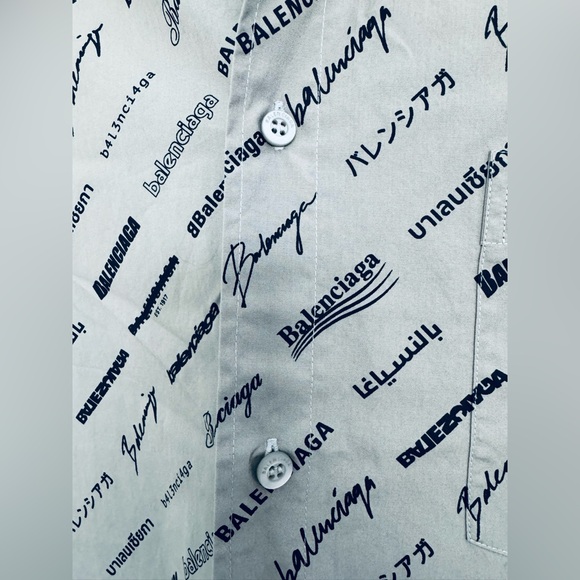 BALENCIAGA
balenciaga
b4l3nci4ga
balenciaga
バレンシアガ
BBalenciaga
บาเลนเซียกา
Balenciaga
BALENCIAGA
Balenciaga
BALENCIAGA
EST. 1917
بالنسياغا
balenciaga
ciaga
BALENCIAGA
Balenciaga
b4l3nci4ga
バレンシアガ
BALENCIAGA
balenciaga
บาเลนเซียกา
balenciaga
バレンシアガ